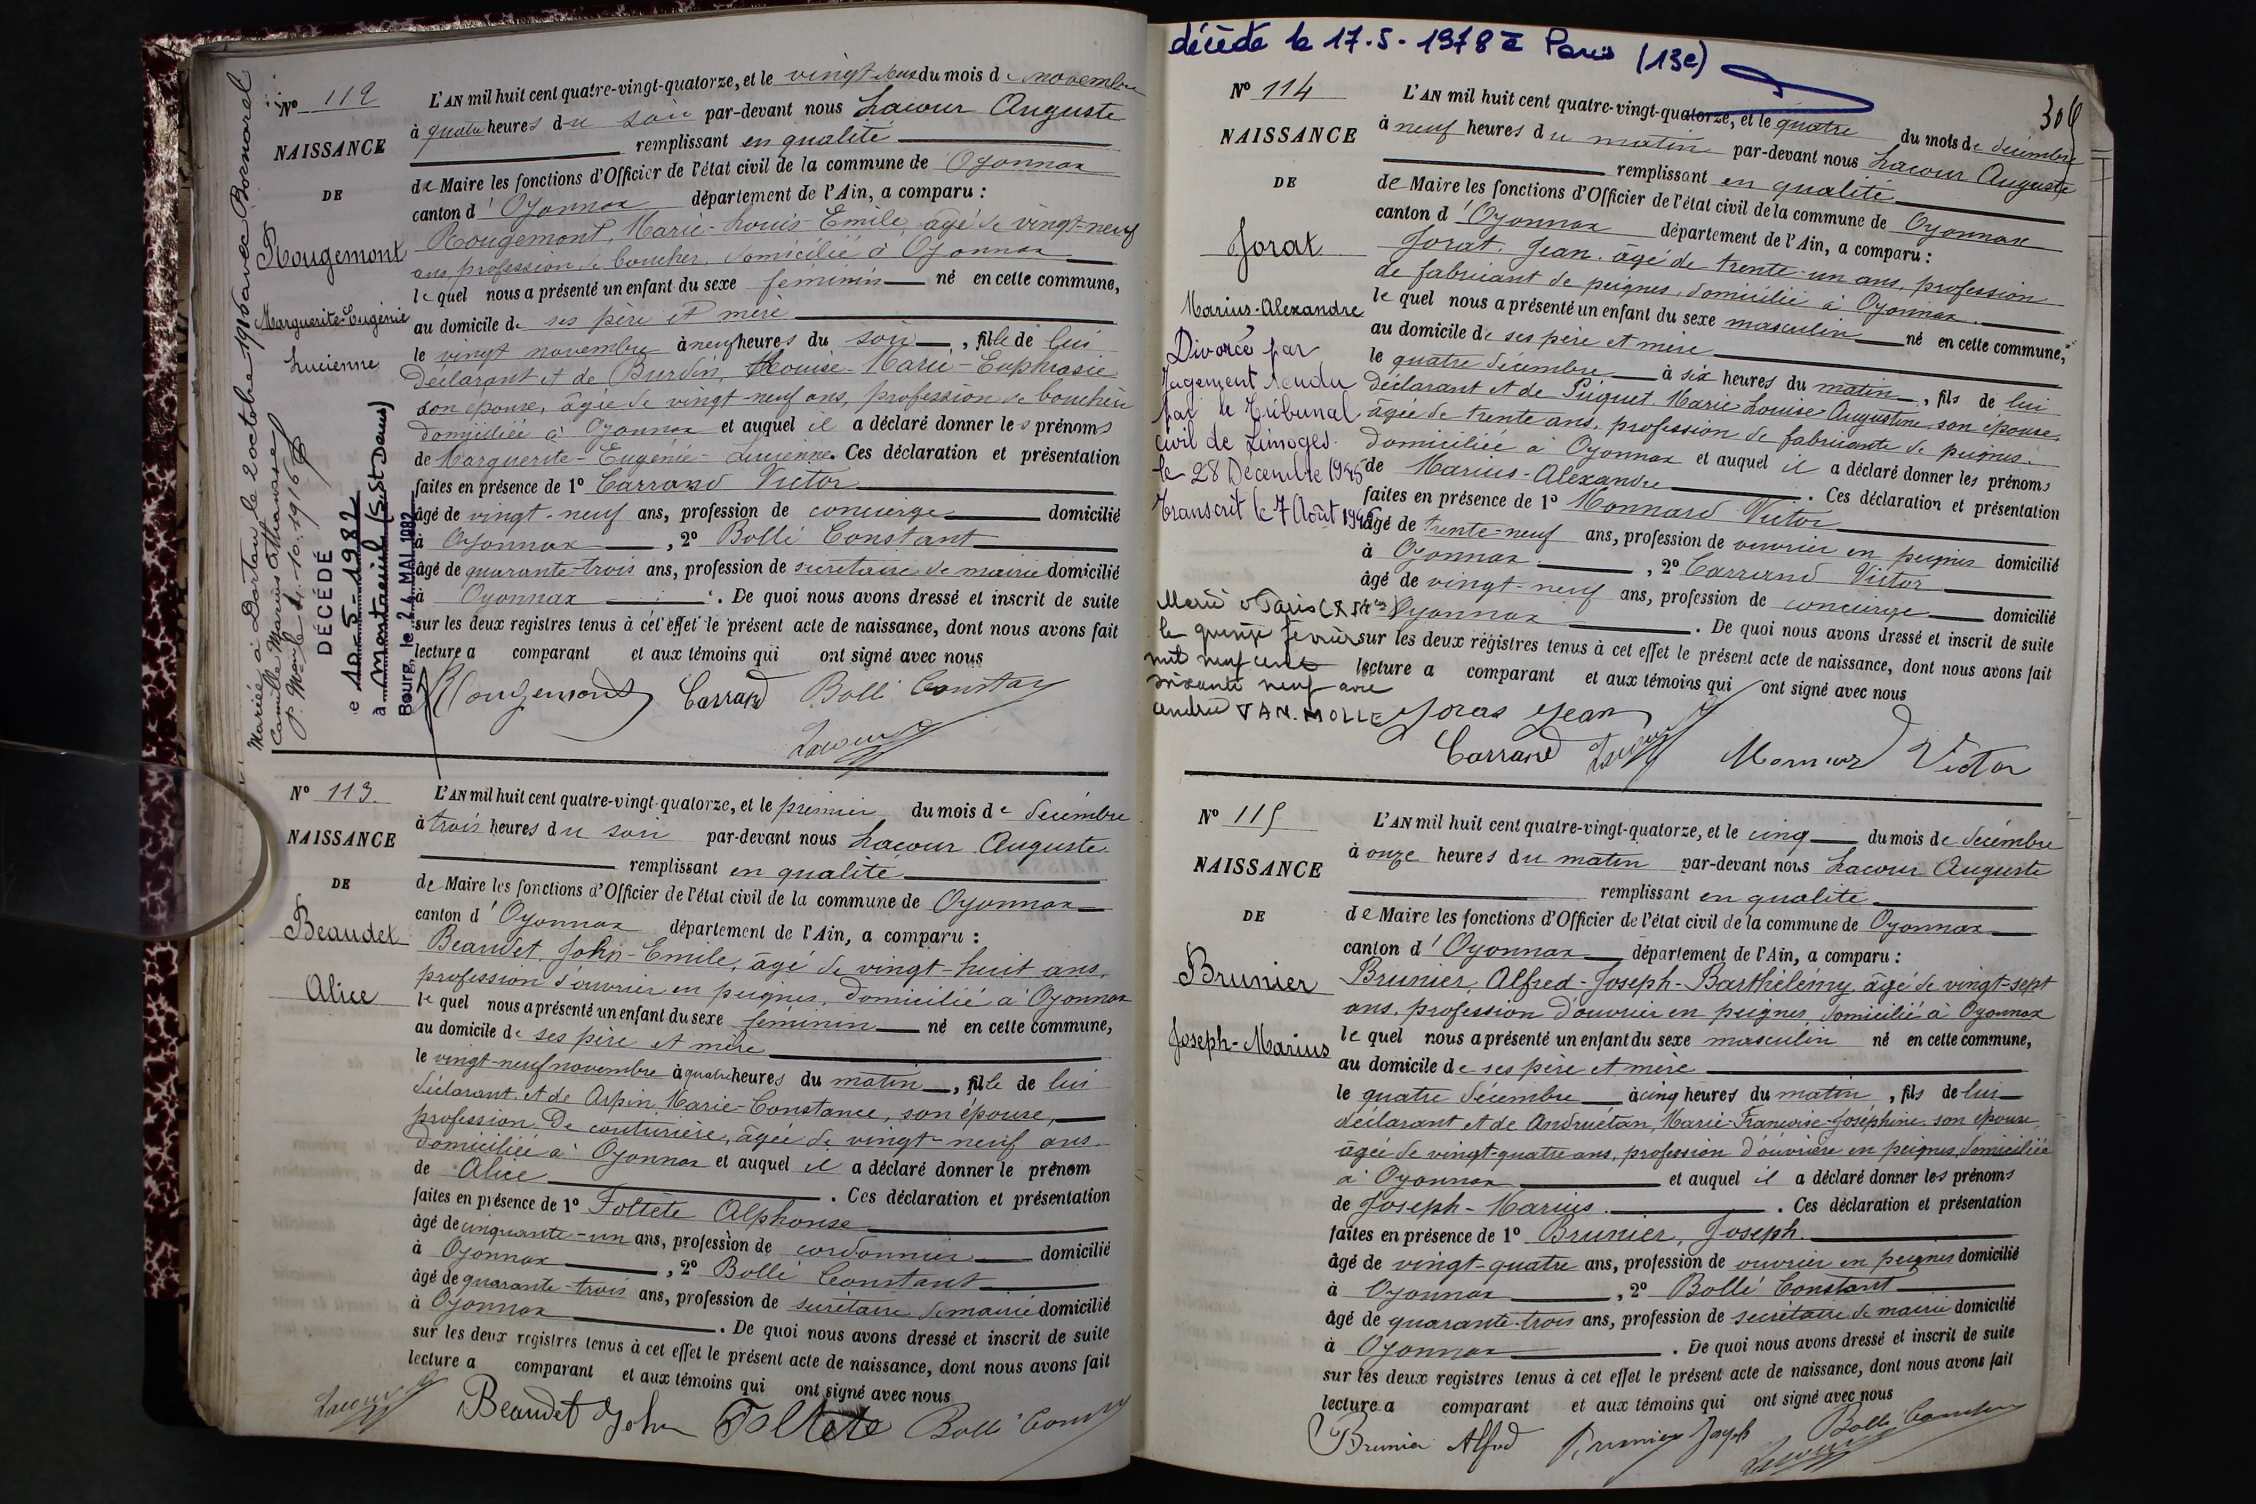 N° 112
NAISSANCE
DE
Rougemont
Marguerite-Eugénie
Lucienne
Mariée à Dortan le 2 octobre 1916 avec Bornarel
Camille Marius Athanase
10.1916
DÉCÉDÉ
le 10-5-1982
à Montreuil (S. St Denis)
Bourg, le 24 MAI 1982
L'AN mil huit cent quatre-vingt-quatorze, et le vingt deux du mois de novembre
à quatre heures du soir par-devant nous Lacour Auguste
remplissant en qualité
de Maire les fonctions d'Officier de l'état civil de la commune de Oyonnax
canton d'Oyonnax département de l'Ain, a comparu :
Rougemont, Marie-Louis-Emile, âgé de vingt-neuf
ans, profession de boucher, domicilié à Oyonnax
lequel nous a présenté un enfant du sexe féminin né en cette commune,
au domicile de ses père et mère
le vingt novembre à neuf heures du soir, fille de lui
déclarant et de Burdin, Louise-Marie-Euphrasie
son épouse, âgée de vingt-neuf ans, profession de bouchère
domiciliée à Oyonnax et auquel il a déclaré donner les prénoms
de Marguerite-Eugénie-Lucienne. Ces déclaration et présentation
faites en présence de 1° Carrand Victor
âgé de vingt-neuf ans, profession de concierge domicilié
à Oyonnax, 2° Bollé Constant
âgé de quarante-trois ans, profession de secrétaire de mairie domicilié
à Oyonnax. De quoi nous avons dressé et inscrit de suite
sur les deux registres tenus à cet effet le présent acte de naissance, dont nous avons fait
lecture a comparant et aux témoins qui ont signé avec nous
Rougemont Carrand Bollé Constant
Lacour
N° 113.
NAISSANCE
DE
Beaudet
Alice
L'AN mil huit cent quatre-vingt-quatorze, et le premier du mois de décembre
à trois heures du soir par-devant nous Lacour Auguste
remplissant en qualité
de Maire les fonctions d'Officier de l'état civil de la commune de Oyonnax
canton d'Oyonnax département de l'Ain, a comparu :
Beaudet, John-Emile, âgé de vingt-huit ans,
profession d'ouvrier en peignes, domicilié à Oyonnax
lequel nous a présenté un enfant du sexe féminin né en cette commune,
au domicile de ses père et mère
le vingt-neuf novembre à quatre heures du matin, fille de lui
déclarant et de Arpin, Marie-Constance, son épouse,
profession De couturière, âgée de vingt-neuf ans
domiciliée à Oyonnax et auquel il a déclaré donner le prénom
de Alice. Ces déclaration et présentation
faites en présence de 1° Foltete Alphonse
âgé de cinquante-un ans, profession de cordonnier domicilié
à Oyonnax, 2° Bollé Constant
âgé de quarante-trois ans, profession de secrétaire de mairie domicilié
à Oyonnax. De quoi nous avons dressé et inscrit de suite
sur les deux registres tenus à cet effet le présent acte de naissance, dont nous avons fait
lecture a comparant et aux témoins qui ont signé avec nous
Lacour Beaudet John Foltete Bollé Const
décédé le 17.5.1978 à Paris (13e)
306
N° 114
NAISSANCE
DE
Jorat
Marius-Alexandre
Divorcé par
Jugement rendu
par le Tribunal
civil de Limoges
le 28 Décembre 1945
Transcrit le 7 Août 1946
Marié à Paris
le quinze février
mil neuf cent
soixante neuf avec
Andrée VAN MOLLE
L'AN mil huit cent quatre-vingt-quatorze, et le quatre du mois de décembre
à neuf heures du matin par-devant nous Lacour Auguste
remplissant en qualité
de Maire les fonctions d'Officier de l'état civil de la commune de Oyonnax
canton d'Oyonnax département de l'Ain, a comparu :
Jorat, Jean, âgé de trente-un ans, profession
de fabricant de peignes, domicilié à Oyonnax.
lequel nous a présenté un enfant du sexe masculin né en cette commune,
au domicile de ses père et mère
le quatre décembre à six heures du matin, fils de lui
déclarant et de Piquet Marie Louise Augustine, son épouse,
âgée de trente ans, profession de fabricante de peignes
domiciliée à Oyonnax et auquel il a déclaré donner les prénoms
de Marius-Alexandre. Ces déclaration et présentation
faites en présence de 1° Monnard Victor
âgé de trente-neuf ans, profession de ouvrier en peignes domicilié
à Oyonnax, 2° Carrand Victor
âgé de vingt-neuf ans, profession de concierge domicilié
Oyonnax. De quoi nous avons dressé et inscrit de suite
sur les deux registres tenus à cet effet le présent acte de naissance, dont nous avons fait
lecture a comparant et aux témoins qui ont signé avec nous
Joras Jean
Carrand Lacour Monnard Victor
N° 115
NAISSANCE
DE
Brunier
Joseph-Marius
L'AN mil huit cent quatre-vingt-quatorze, et le cinq du mois de décembre
à onze heures du matin par-devant nous Lacour Auguste
remplissant en qualité
de Maire les fonctions d'Officier de l'état civil de la commune de Oyonnax
canton d'Oyonnax département de l'Ain, a comparu :
Brunier, Alfred-Joseph-Barthélémy, âgé de vingt-sept
ans, profession d'ouvrier en peignes, domicilié à Oyonnax
lequel nous a présenté un enfant du sexe masculin né en cette commune,
au domicile de ses père et mère
le quatre décembre à cinq heures du matin, fils de lui
déclarant et de Andruétan, Marie-Françoise-Joséphine, son épouse,
âgée de vingt-quatre ans, profession d'ouvrière en peignes, domiciliée
à Oyonnax et auquel il a déclaré donner les prénoms
de Joseph-Marius. Ces déclaration et présentation
faites en présence de 1° Brunier, Joseph.
âgé de vingt-quatre ans, profession de ouvrier en peignes domicilié
à Oyonnax, 2° Bollé Constant
âgé de quarante-trois ans, profession de secrétaire de mairie domicilié
à Oyonnax. De quoi nous avons dressé et inscrit de suite
sur les deux registres tenus à cet effet le présent acte de naissance, dont nous avons fait
lecture a comparant et aux témoins qui ont signé avec nous
Brunier Alfred Brunier Joseph Bollé Constant
Lacour